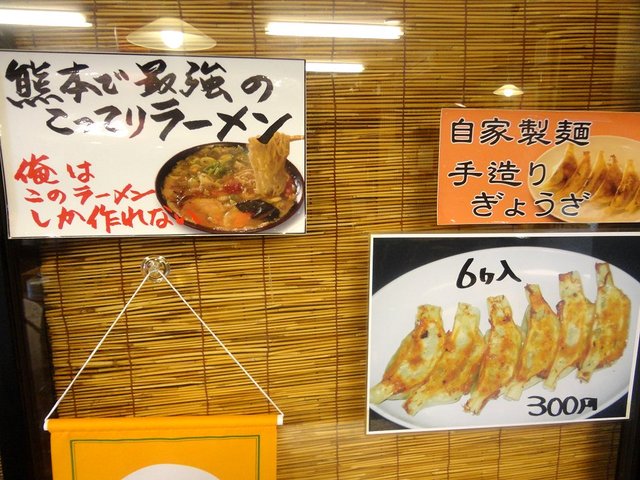 熊本で最強の
こってりラーメン
俺は
このラーメン
しか作れない
自家製麺
手造り
ぎょうざ
6ヶ入
300円